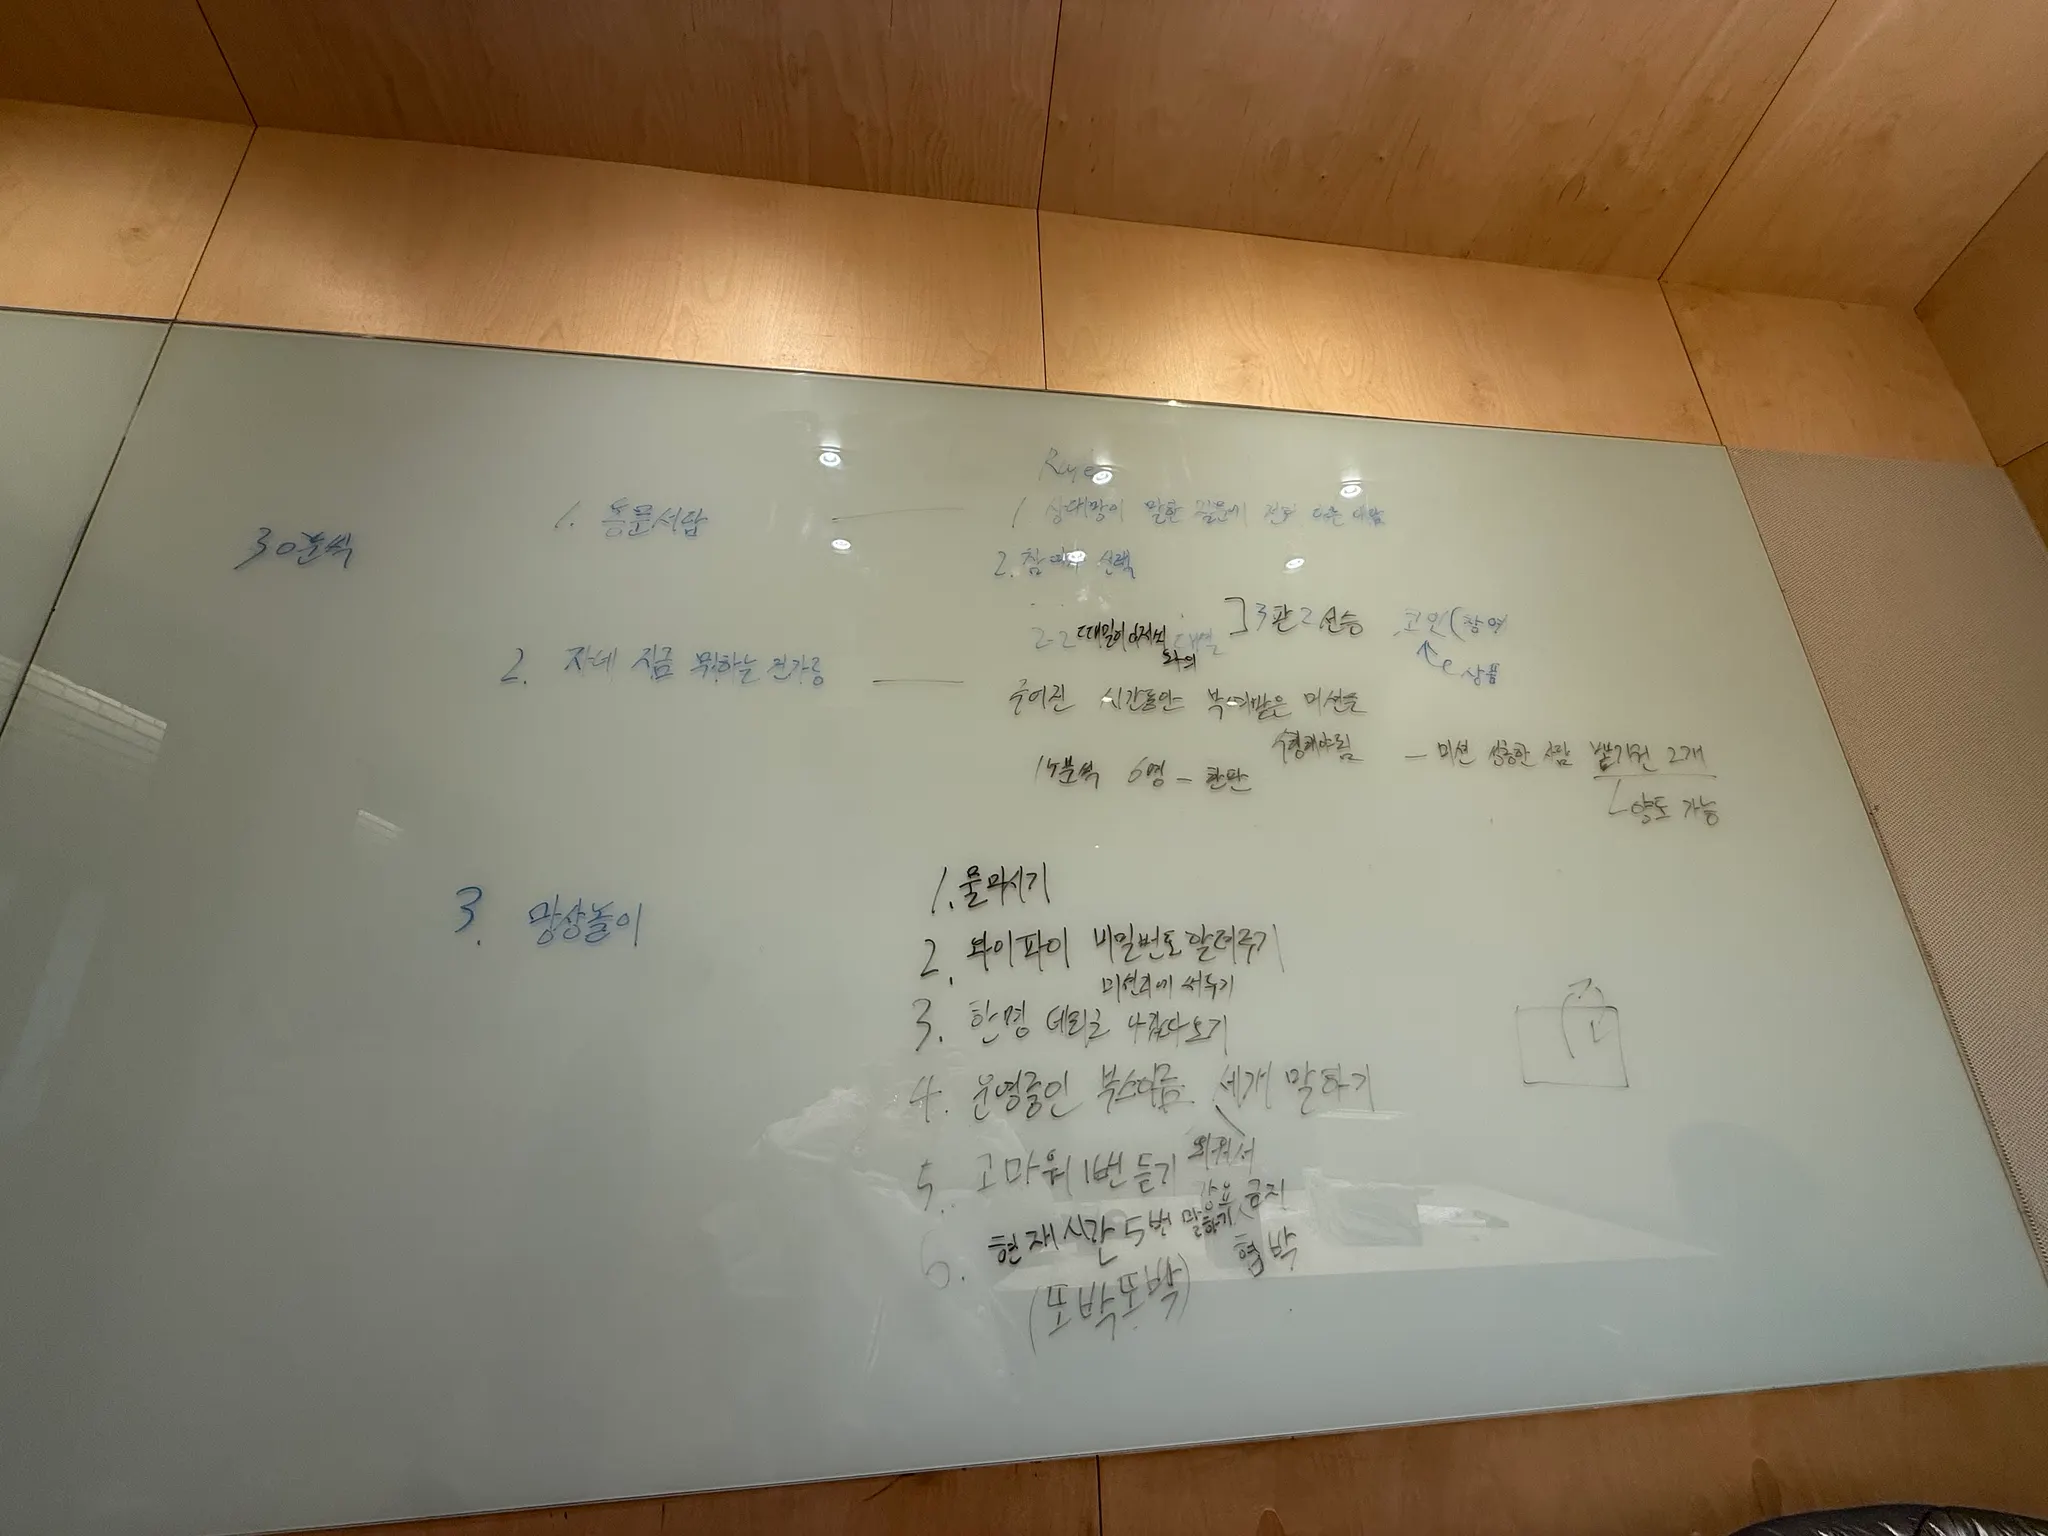 Rule
30분씩
1. 동문서답
1 상대방이 말한 질문에 전혀 다른 대답
2. 참여자 선택
2-2
]3판2선승
코인(참여
상품
2. 자네 지금 뭐하는 건가용
주어진 시간동안 부여받은 미션을
수행해야됨
15분씩 6명 - 한판
- 미션 성공한 사람 뽑기권 2개
양도 가능
3. 망상놀이
1. 물마시기
2. 와이파이 비밀번호 알려주기
미션지에 써두기
3. 한명 데리고 나갔다 오기
4. 운영중인 부스이름 세개 말하기
외워서
5. 고마워 1번 듣기
강요 금지
6. 현재시간 5번 말하기
협박
(또박또박)